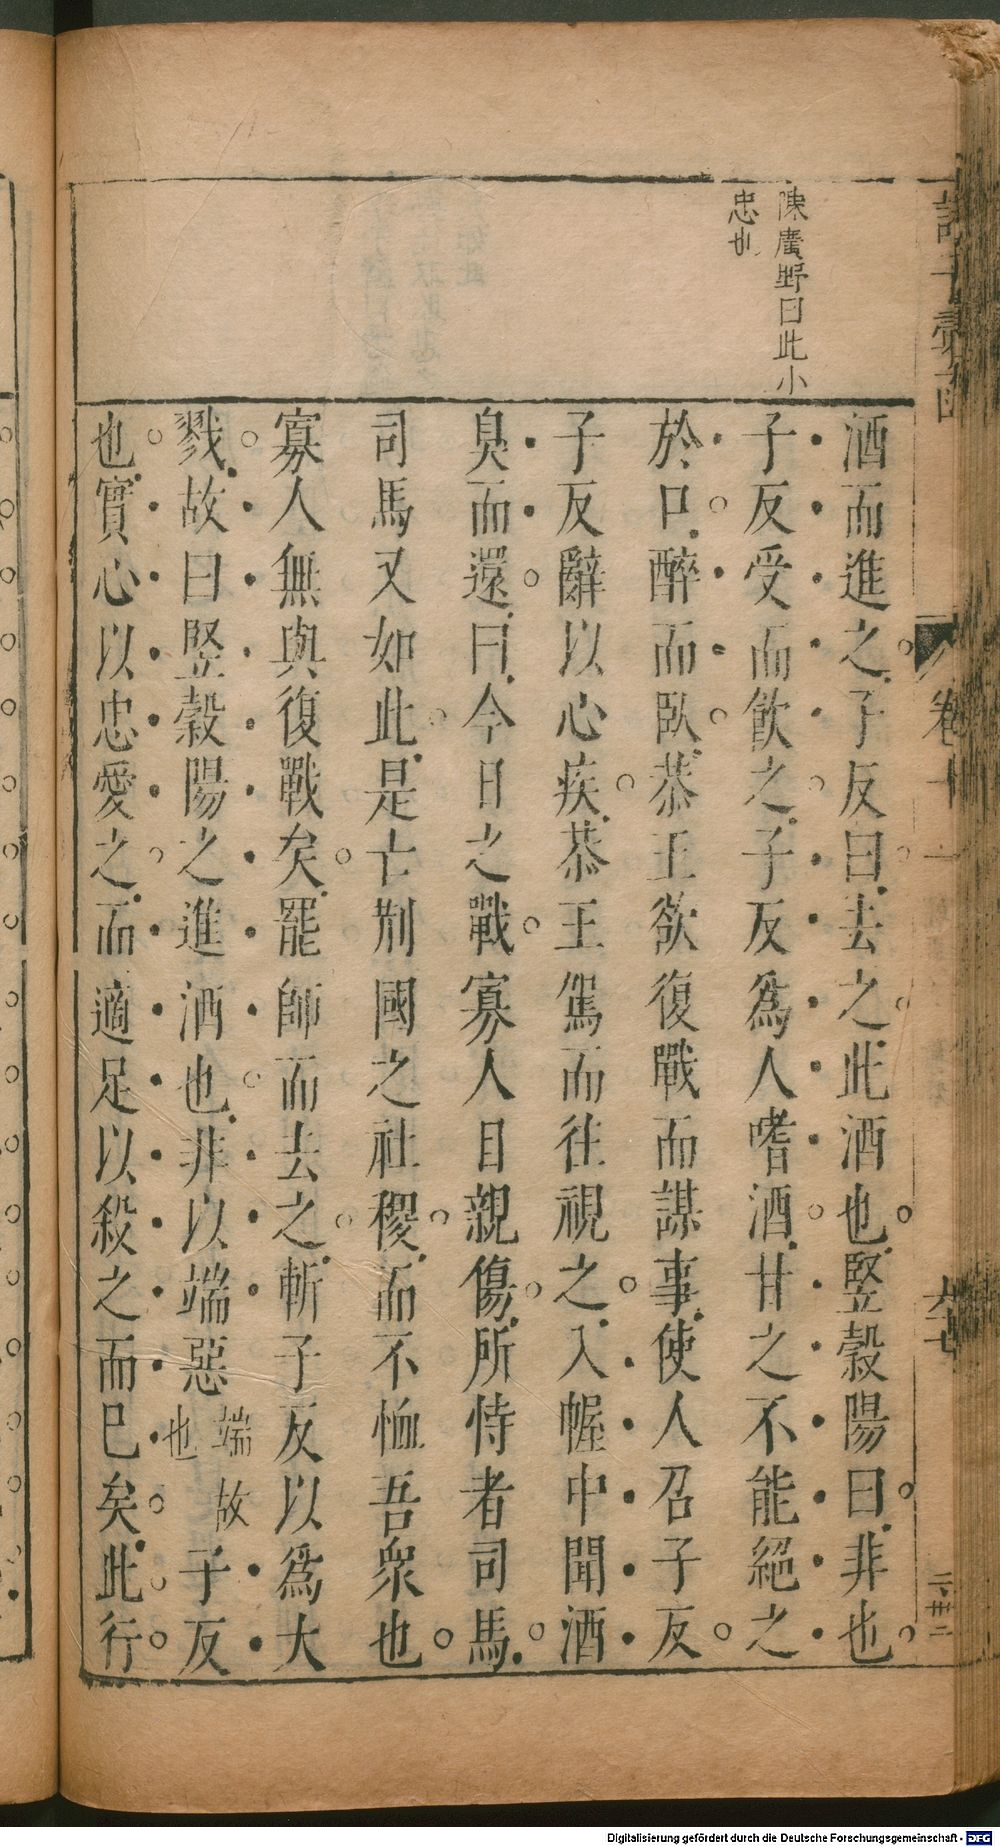 陳廣野曰此小
忠也
酒而進之子反曰去之此酒也竪穀陽曰非也
子反受而飲之子反爲人嗜酒甘之不能絕之
於口醉而臥恭王欲復戰而謀事使人召子反
子反辭以心疾恭王駕而往視之入幄中聞酒
臭而還曰今日之戰寡人目親傷所恃者司馬
司馬又如此是亡荆國之社稷而不恤吾衆也
寡人無與復戰矣罷師而去之斬子反以爲大
戮故曰竪穀陽之進酒也非以端惡端故也子反
也實心以忠愛之而適足以殺之而巳矣此行
卷十一
Digitalisierung gefördert durch die Deutsche Forschungsgemeinschaft - DFG